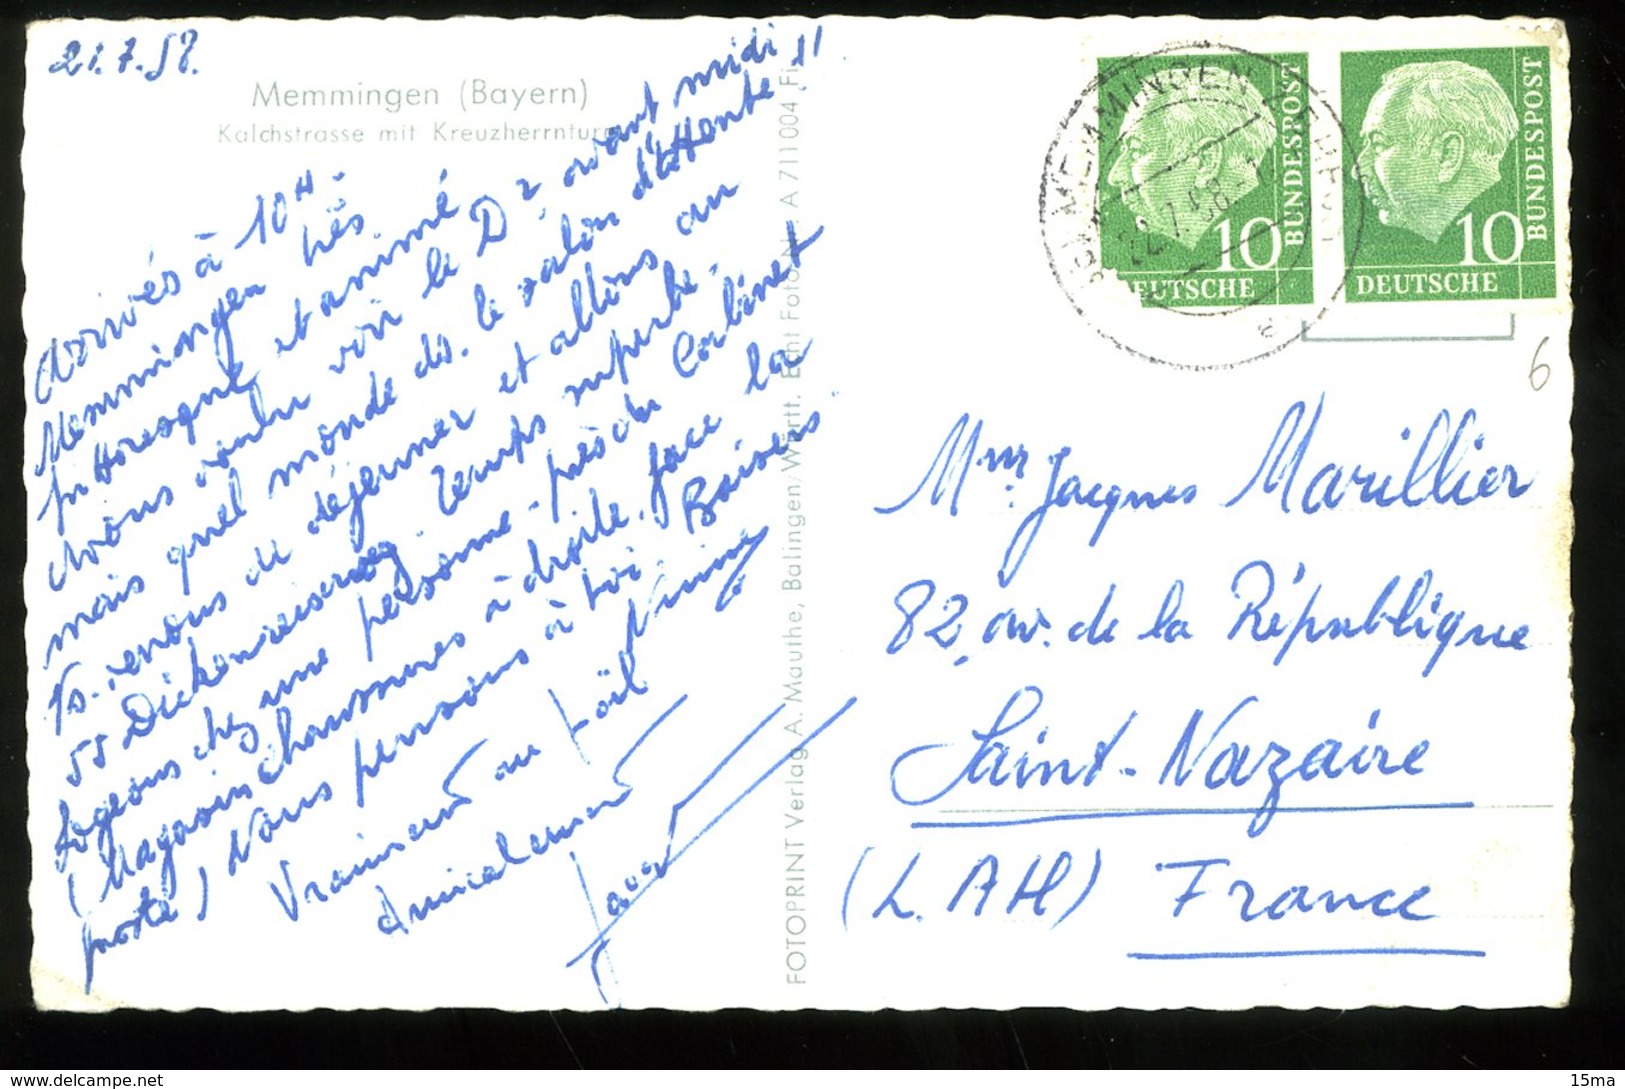 21.7.58.
Memmingen (Bayern)
Kalchstrasse mit Kreuzherrnturm
Arrivés à 10H.
Memmingen très
pittoresque et animé.
Avons voulu voir le Dr avant midi
mais quel monde ds. le salon d'attente !!
Vs. venons de déjeuner et allons au
55 Dickenreiserweg. Temps superbe.
Logeons chez une personne près du Cabinet
(Magasin chaussures à droite, face la
poste) Nous pensons à toi. Baisers
Vraiment au poil
Ninine
Amicalement
FOTOPRINT Verlag A. Mauthe, Balingen/Württ. Echt Foto Nr. A 711004 Fi
MEMMINGEN
22.7.58
a
10
DEUTSCHE
BUNDESPOST
10
DEUTSCHE
BUNDESPOST
6
Mme Jacques Marillier
82, av. de la République
Saint-Nazaire
(L. AH) France
15ma